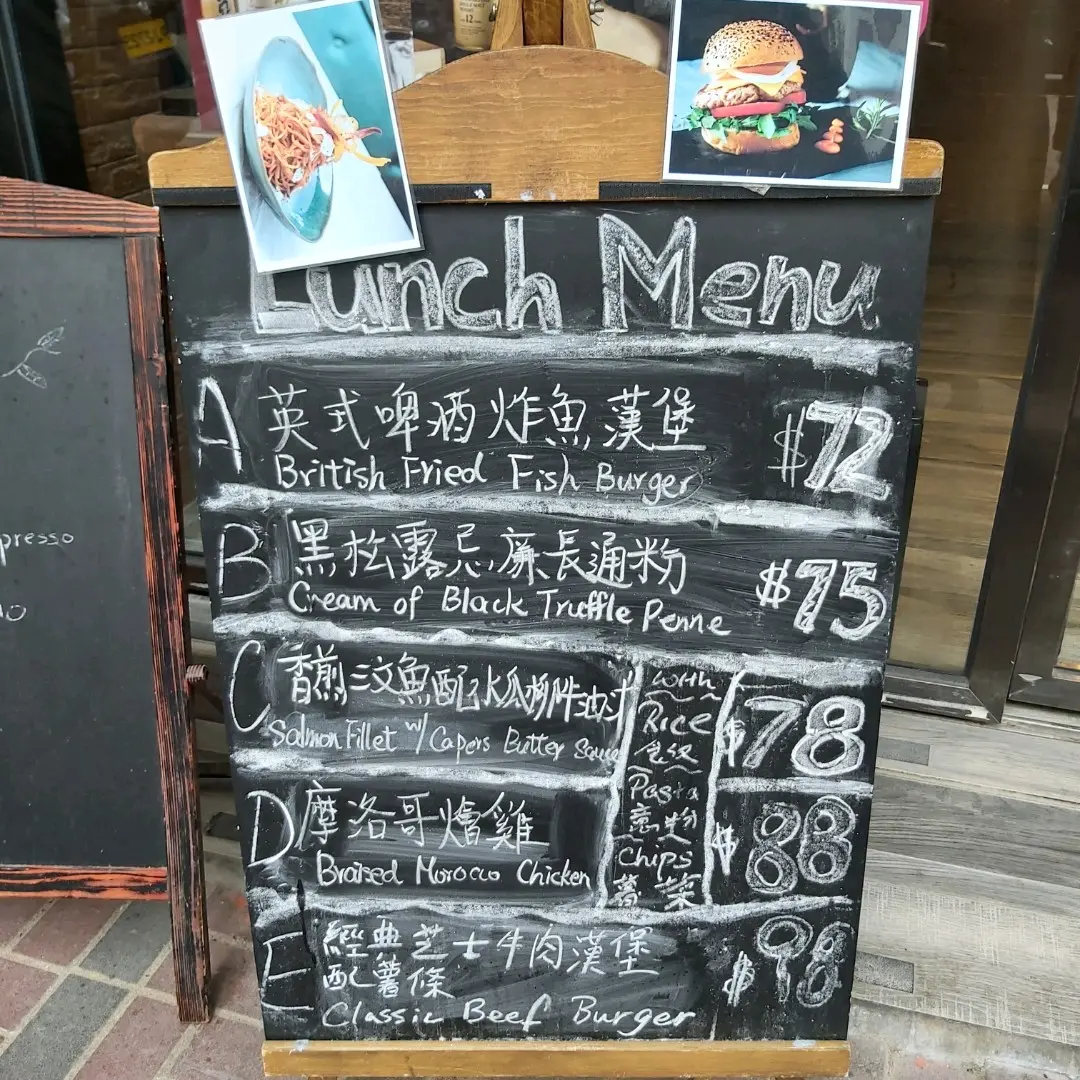 Lunch Menu
A 英式啤酒炸魚漢堡 $72
British Fried Fish Burger
B 黑松露忌廉長通粉 $75
Cream of Black Truffle Penne
C 香煎三文魚配水瓜柳牛油汁 $78
Salmon Fillet w/ Capers Butter Sauce
D 摩洛哥燴雞 $88
Braised Morocco Chicken
with
Rice
Pasta
意粉
Chips
薯
E 經典芝士牛肉漢堡 $98
配薯條
Classic Beef Burger
presso
12